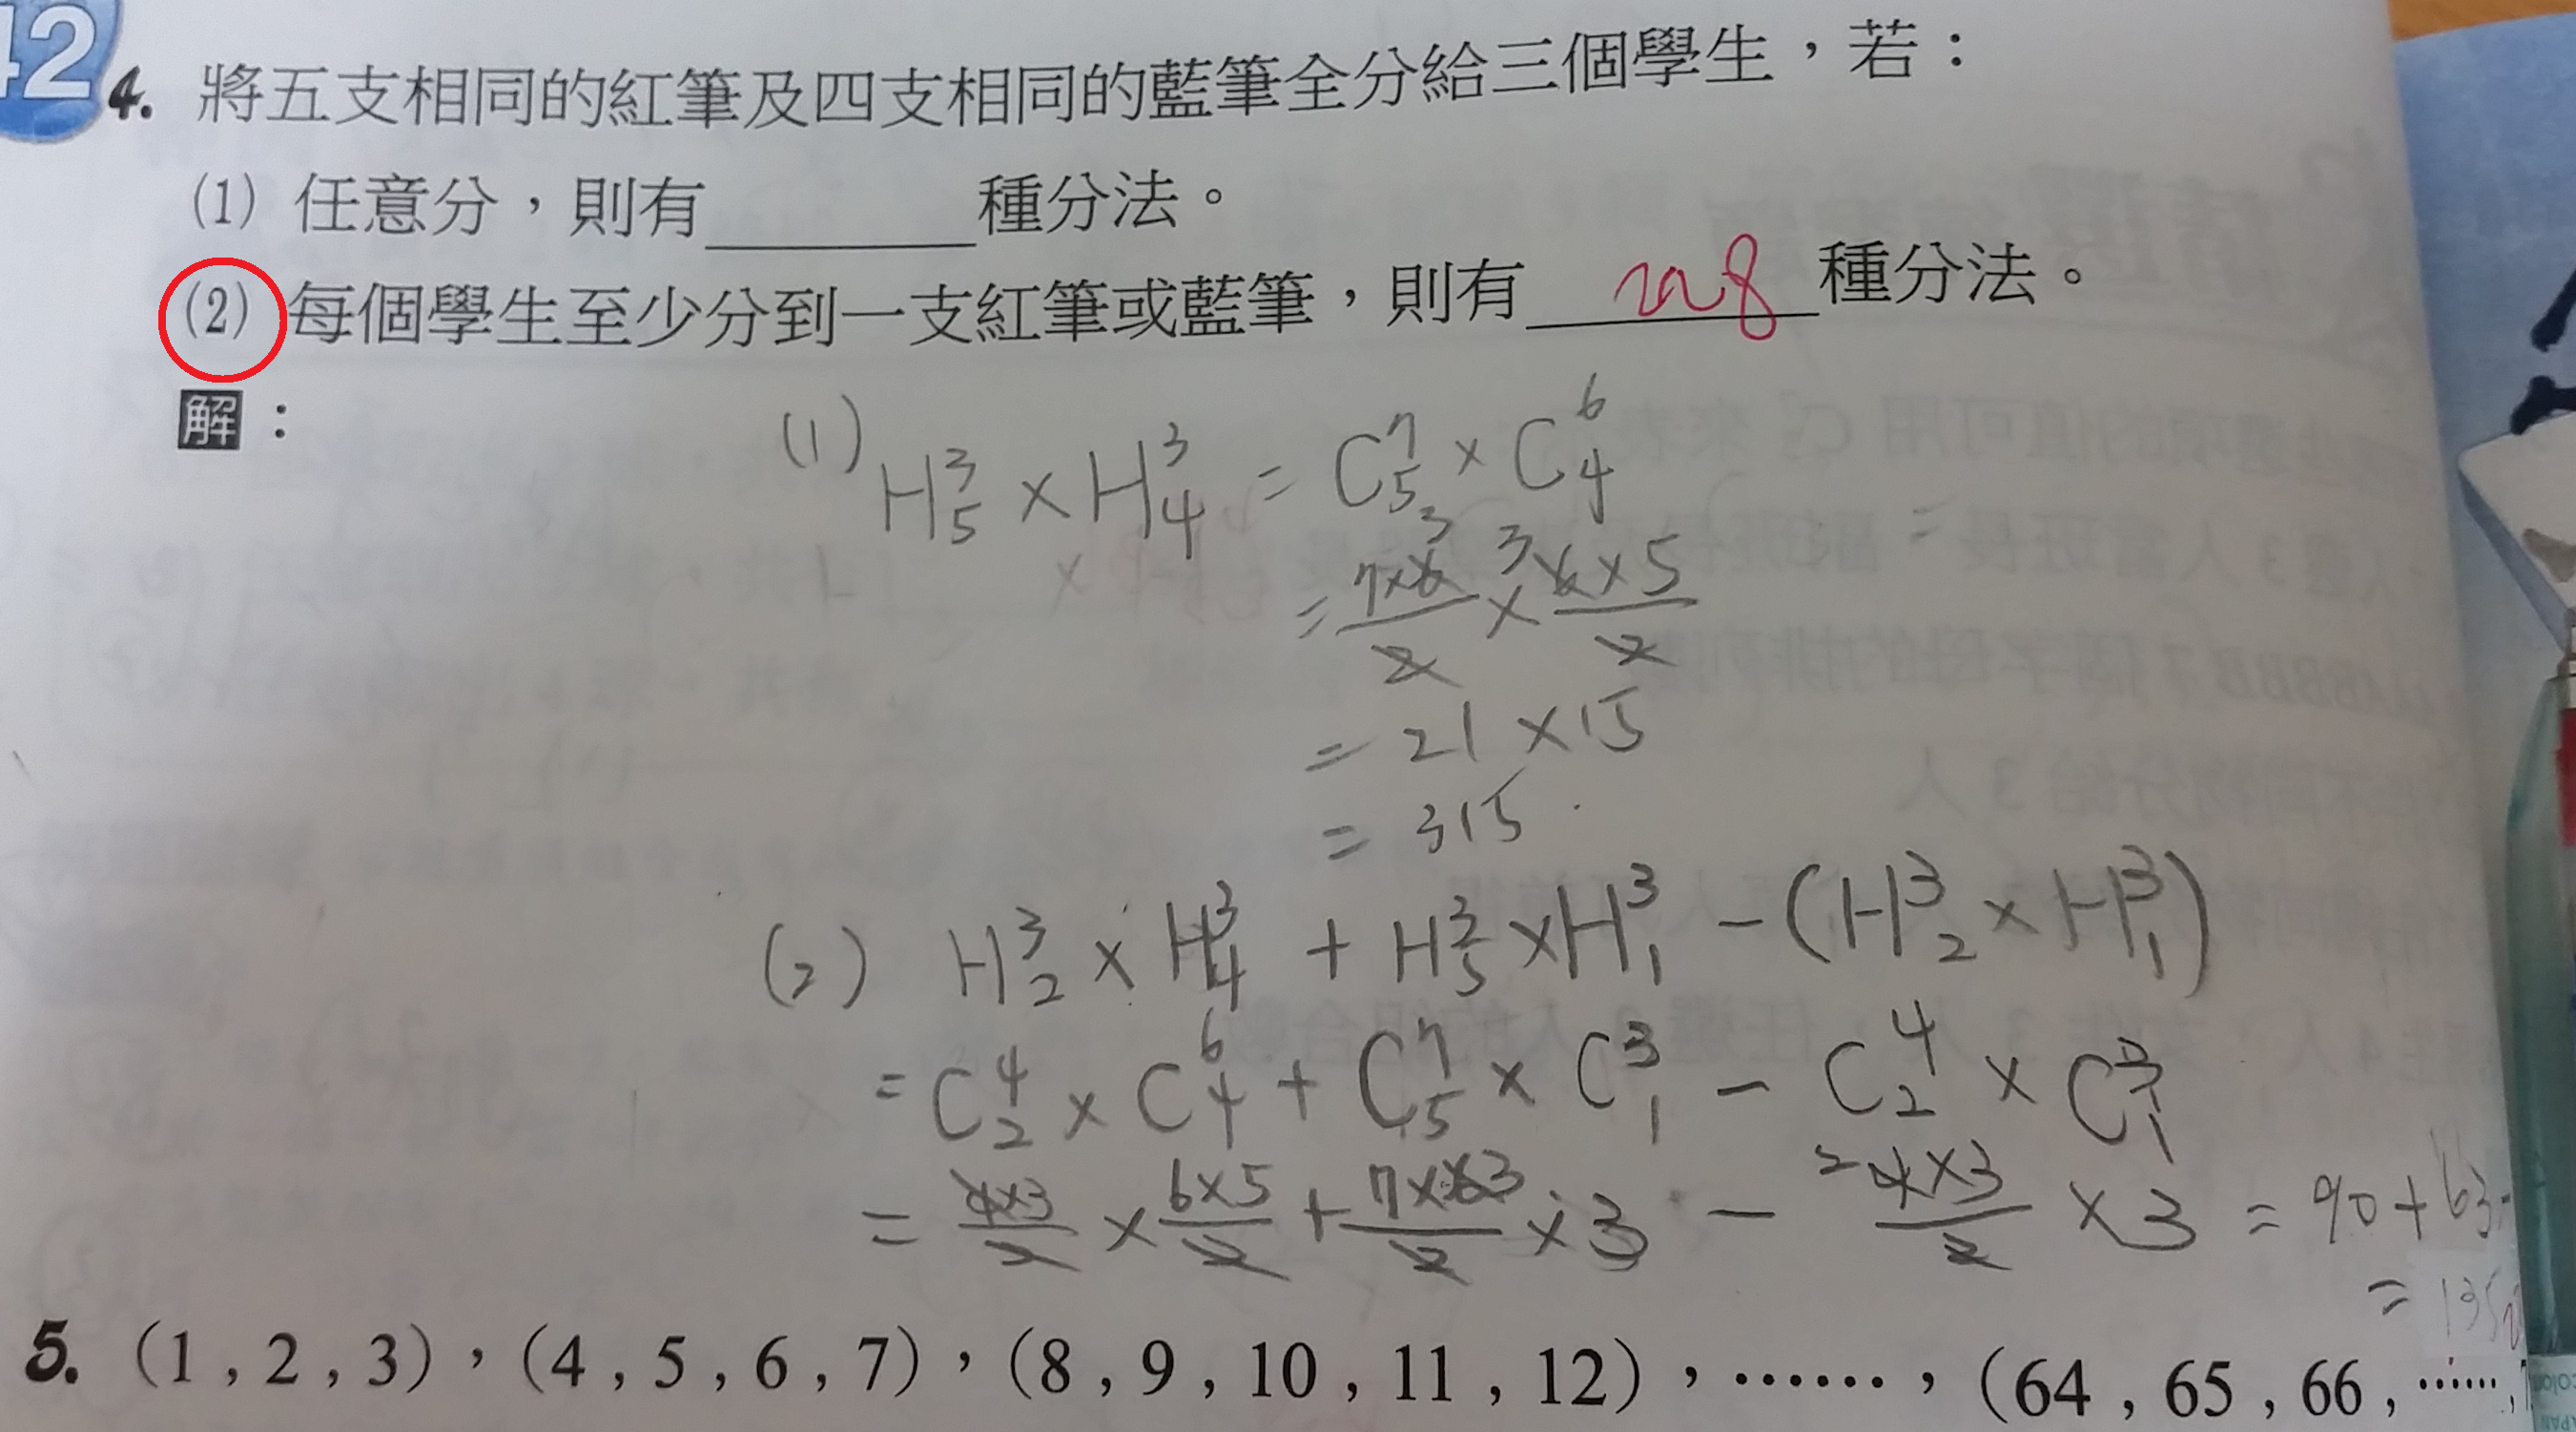 42
4. 將五支相同的紅筆及四支相同的藍筆全分給三個學生，若：
(1) 任意分，則有________種分法。
(2) 每個學生至少分到一支紅筆或藍筆，則有 228 種分法。
解：
(1) H³₅ × H³₄ = C⁷₅ × C⁶₄
= 7×6/2 × 6×5/2
3 3
= 21 × 15
= 315
(2) H³₂ × H³₄ + H³₅ × H³₁ - (H³₂ × H³₁)
= C⁴₂ × C⁶₄ + C⁷₅ × C³₁ - C⁴₂ × C³₁
= 4×3/2 × 6×5/2 + 7×6 3/2 × 3 - 2 4×3/2 × 3 = 90 + 63
= 135
5. (1 , 2 , 3)，(4 , 5 , 6 , 7)，(8 , 9 , 10 , 11 , 12)，……，(64 , 65 , 66 , ……,